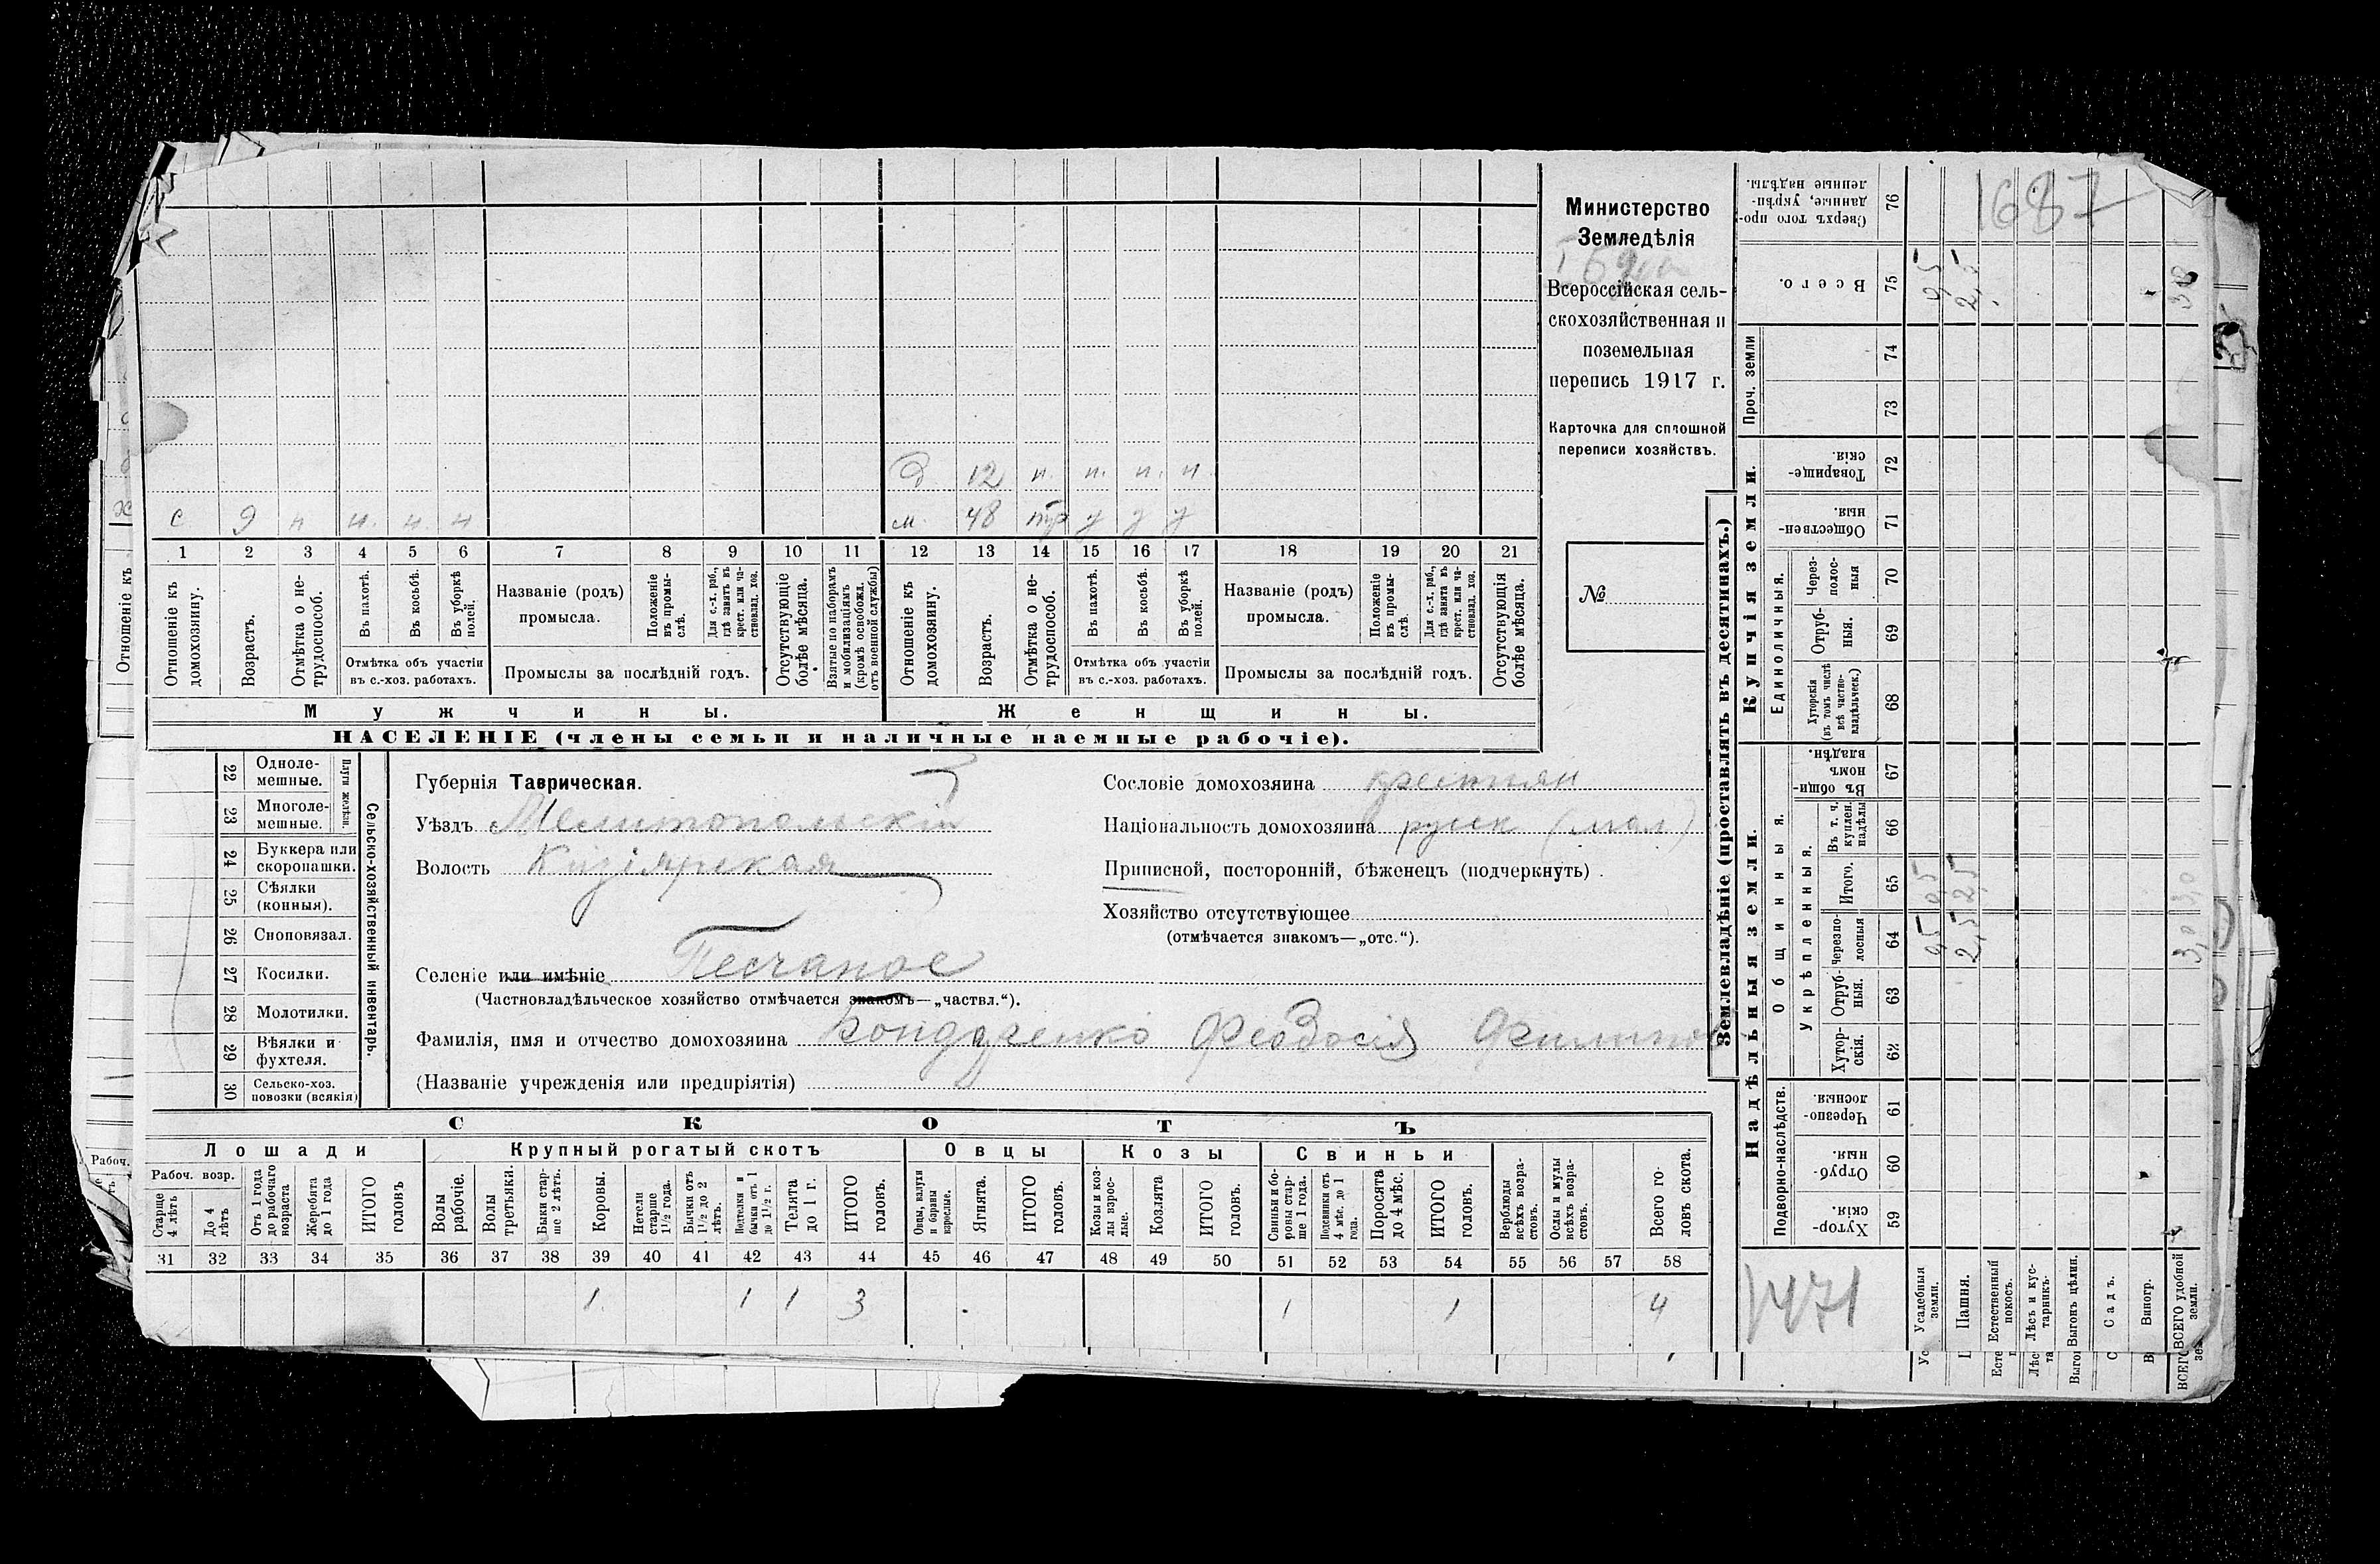 Министерство
Земледѣлія
Всероссійская сель-
скохозяйственная и
поземельная
перепись 1917 г.
Карточка для сплошной
переписи хозяйствъ.
№
1687
д 12 н. н. н. н.
с 9 н н. н. н м. 48 тр у у у
1 2 3 4 5 6 7 8 9 10 11 12 13 14 15 16 17 18 19 20 21
Отношеніе къ домохозяину.
Возрастъ.
Отмѣтка о не-трудоспособ.
Въ пахотѣ.
Въ косьбѣ.
Въ уборкѣ полей.
Отмѣтка объ участіи
въ с.-хоз. работахъ.
Названіе (родъ)
промысла.
Положеніе въ промы-слѣ.
Для с.-х. раб., гдѣ занятъ въ крест. или ча-стновлад. хоз.
Промыслы за послѣдній годъ.
Отсутствующіе болѣе мѣсяца.
Взятые по наборамъ и мобилизаціямъ (кромѣ освобожд. отъ военной службы)
Отношеніе къ домохозяину.
Возрастъ.
Отмѣтка о не-трудоспособ.
Въ пахотѣ.
Въ косьбѣ.
Въ уборкѣ полей.
Отмѣтка объ участіи
въ с.-хоз. работахъ.
Названіе (родъ)
промысла.
Положеніе въ промы-слѣ.
Для с.-х. раб., гдѣ занята въ крест. или ча-стновлад. хоз.
Промыслы за послѣдній годъ.
Отсутствующія болѣе мѣсяца.
Мужчины. Женщины.
НАСЕЛЕНІЕ (члены семьи и наличные наемные рабочіе).
22 Одноле-мешные.
23 Многоле-мешные.
Плуги желѣзн.
24 Буккера или скоропашки.
25 Сѣялки (конныя).
26 Сноповязал.
27 Косилки.
28 Молотилки.
29 Вѣялки и фухтеля.
30 Сельско-хоз. повозки (всякія)
Сельско-хозяйственный инвентарь.
Губернія Таврическая.
Уѣздъ Мелитопольскій
Волость Кизіярская
Селеніе или имѣніе Песчаное
(Частновладѣльческое хозяйство отмѣчается знакомъ—„частвл.“).
Фамилія, имя и отчество домохозяина Бондаренко Феодосія
(Названіе учрежденія или предпріятія)
Сословіе домохозяина крестьян
Національность домохозяина русск (мал)
Приписной, посторонній, бѣженецъ (подчеркнуть).
Хозяйство отсутствующее
(отмѣчается знакомъ—„отс.“).
СКОТЪ
Лошади Крупный рогатый скотъ Овцы Козы Свиньи
Рабоч. возр.
Старше 4 лѣтъ
До 4 лѣтъ
Отъ 1 года до рабочаго возраста
Жеребята до 1 года
ИТОГО головъ
Волы рабочіе.
Волы третьяки.
Быки стар-ше 2 лѣтъ.
Коровы.
Нетели старше 1 1/2 года.
Бычки отъ 1 1/2 до 2 лѣтъ.
Подтелки и бычки отъ 1 до 1 1/2 г.
Телята до 1 г.
ИТОГО головъ.
Овцы, валухи и бараны взрослые.
Ягнята.
ИТОГО головъ.
Козы и коз-лы взрос-лые.
Козлята
ИТОГО головъ.
Свиньи и бо-ровы стар-ше 1 года.
Подсвинки отъ 4 мѣс. до 1 года.
Поросята до 4 мѣс.
ИТОГО головъ.
Верблюды всѣхъ возра-стовъ.
Ослы и мулы всѣхъ возра-стовъ.
Всего го-ловъ скота.
31 32 33 34 35 36 37 38 39 40 41 42 43 44 45 46 47 48 49 50 51 52 53 54 55 56 57 58
1 1 1 3 1 1 4
Землевладѣніе (проставлять въ десятинахъ.)
Надѣльныя земли. Купчія земли.
Подворно-наслѣдств.
Общинныя.
Укрѣпленныя.
Единоличныя.
Проч. земли
Хутор-скія. 59
Отруб-ныя. 60
Черезпо-лосныя. 61
Хутор-скія. 62
Отруб-ныя. 63
Черезпо-лосныя 64
Итого. 65
Въ т. ч. куплен. надѣлы 66
Въ общи-номъ владѣн. 67
Хуторскія (въ томъ числѣ всѣ частно-владѣльческ.) 68
Отруб-ныя. 69
Через-полос-ныя 70
Обществен-ныя. 71
Товарище-скія. 72
73
74
Всего. 75
Сверхъ того про-данные, укрѣп-ленные надѣлы. 76
1471
Усадебныя земли. 0,5 0,5 0,5
Пашня. 2,5 2,5 2,5
Естественный покосъ.
Лѣсъ и кус-тарникъ.
Выгонъ цѣлин.
Садъ.
Виногр.
ВСЕГО удобной земли. 3,0 3,0